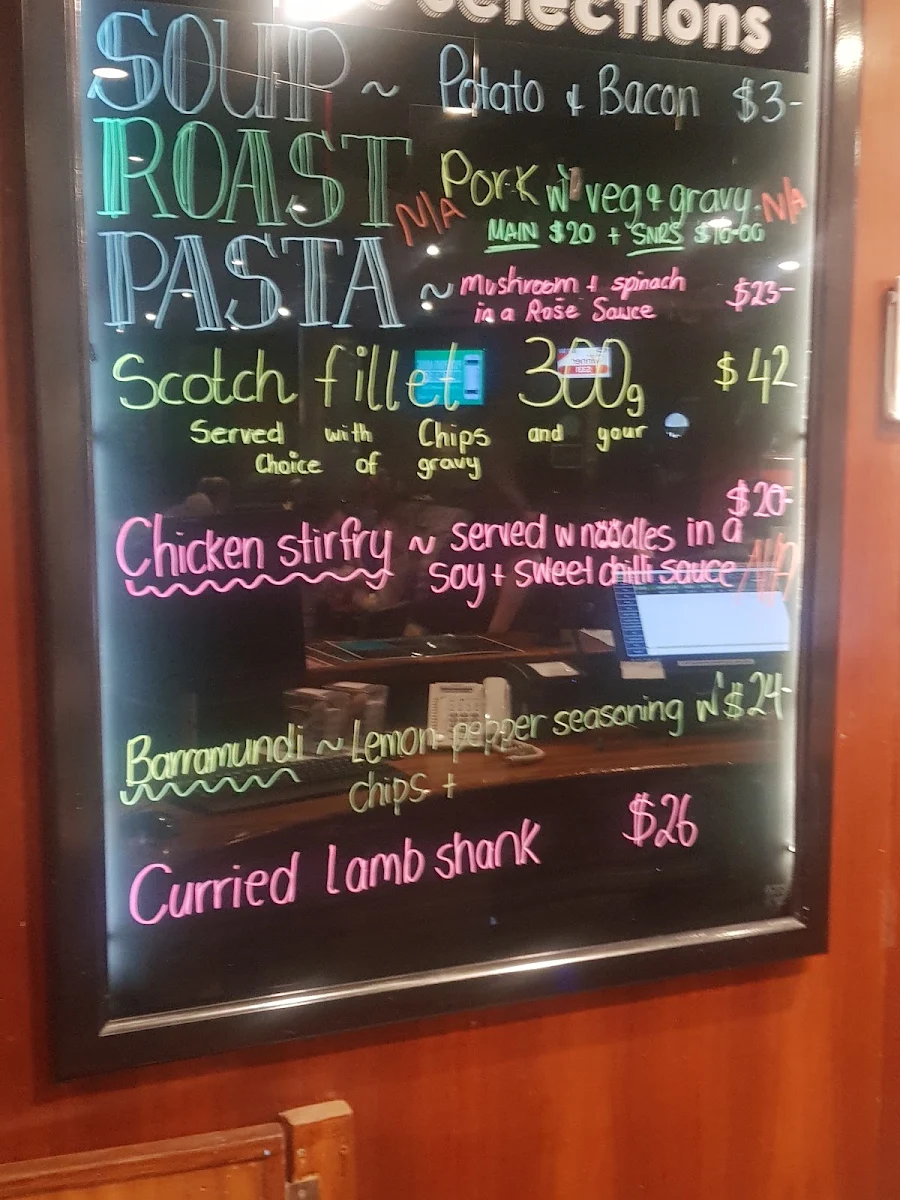 selections
SOUP ~ Potato & Bacon $3-
ROAST N/A Pork w' veg & gravy. N/A
MAIN $20 + SNRS $16-00
PASTA ~ mushroom + spinach $23-
in a Rose Sauce
Scotch fillet 300g $42
Served with Chips and your
Choice of gravy
$20-
Chicken stirfry ~ served w noodles in a
soy + sweet chilli sauce N/A
Barramundi ~ Lemon pepper seasoning w' $24-
chips +
Curried lamb shank $26